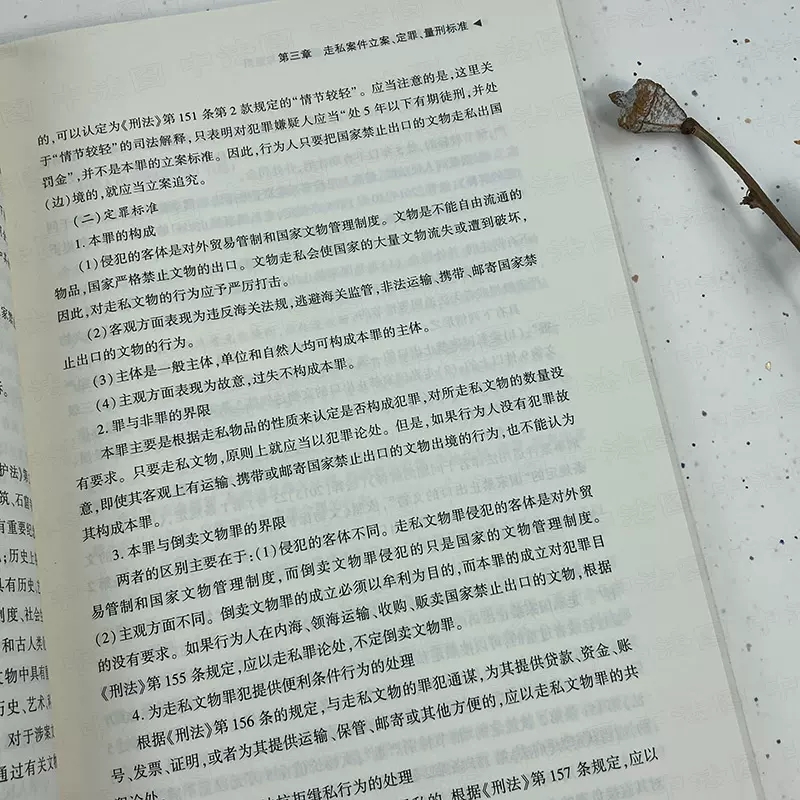 第三章 走私案件立案、定罪、量刑标准 ◀
的,可以认定为《刑法》第151条第2款规定的“情节较轻”。应当注意的是,这里关
于“情节较轻”的司法解释,只表明对犯罪嫌疑人应当“处5年以下有期徒刑,并处
罚金”,并不是本罪的立案标准。因此,行为人只要把国家禁止出口的文物走私出国
(边)境的,就应当立案追究。
(二)定罪标准
1. 本罪的构成
(1)侵犯的客体是对外贸易管制和国家文物管理制度。文物是不能自由流通的
物品,国家严格禁止文物的出口。文物走私会使国家的大量文物流失或遭到破坏,
因此,对走私文物的行为应予严厉打击。
(2)客观方面表现为违反海关法规,逃避海关监管,非法运输、携带、邮寄国家禁
止出口的文物的行为。
(3)主体是一般主体,单位和自然人均可构成本罪的主体。
(4)主观方面表现为故意,过失不构成本罪。
2. 罪与非罪的界限
本罪主要是根据走私物品的性质来认定是否构成犯罪,对所走私文物的数量没
有要求。只要走私文物,原则上就应当以犯罪论处。但是,如果行为人没有犯罪故
意,即使其客观上有运输、携带或邮寄国家禁止出口的文物出境的行为,也不能认为
其构成本罪。
3. 本罪与倒卖文物罪的界限
两者的区别主要在于:(1)侵犯的客体不同。走私文物罪侵犯的客体是对外贸
易管制和国家文物管理制度,而倒卖文物罪侵犯的只是国家的文物管理制度。
(2)主观方面不同。倒卖文物罪的成立必须以牟利为目的,而本罪的成立对犯罪目
的没有要求。如果行为人在内海、领海运输、收购、贩卖国家禁止出口的文物,根据
《刑法》第155条规定,应以走私罪论处,不定倒卖文物罪。
4. 为走私文物罪犯提供便利条件行为的处理
根据《刑法》第156条的规定,与走私文物的罪犯通谋,为其提供贷款、资金、账
号、发票、证明,或者为其提供运输、保管、邮寄或其他方便的,应以走私文物罪的共
犯论处。
抗拒缉私行为的处理
私的,根据《刑法》第157条规定,应以
护法》第
筑、石窟
有重要纪
;历史上
具有历史、
制度、社会
和古人类
文物中具有
历史、艺术、
对于涉案
通过有关文